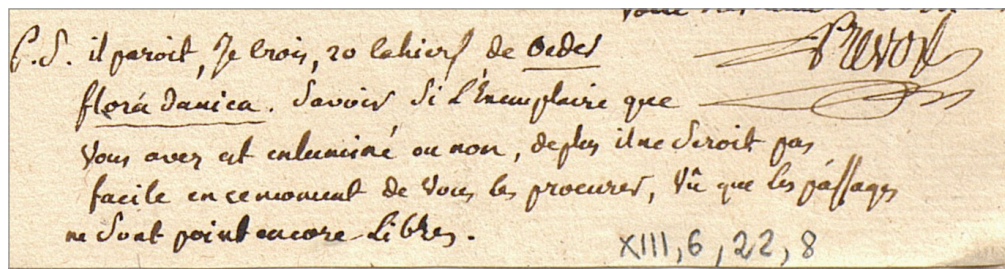 P.S. il paroit, Je Crois, 20 Cahiers de Oeder
flora danica. Savoir Si L'Exemplaire que
Vous avez est enluminé ou non, deplus il ne Seroit pas
facile en ce moment de Vous les procurer, Vû que les passages
ne Sont point encore Libres.
Prevost
XIII, 6, 22, 8